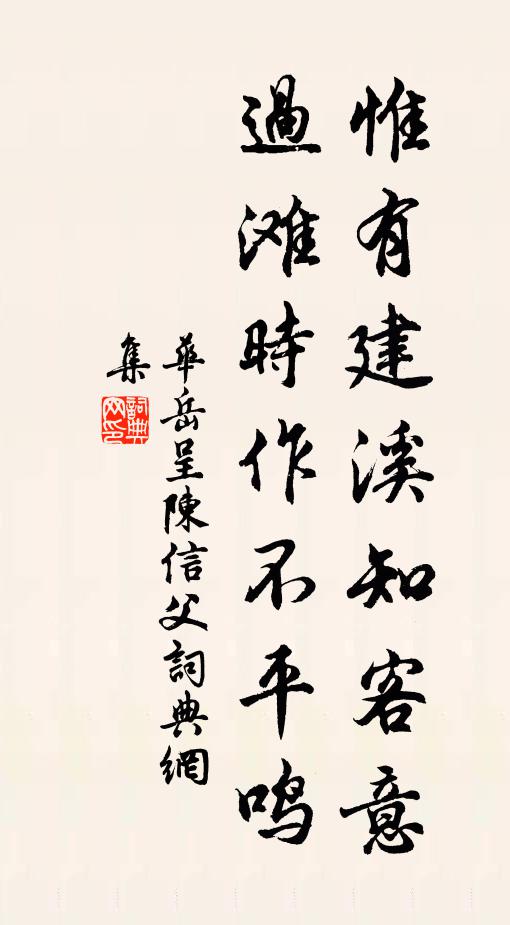 惟有建溪知客意
過滩時作不平鸣
華岳呈陳信父詞典網
集
詞典網印